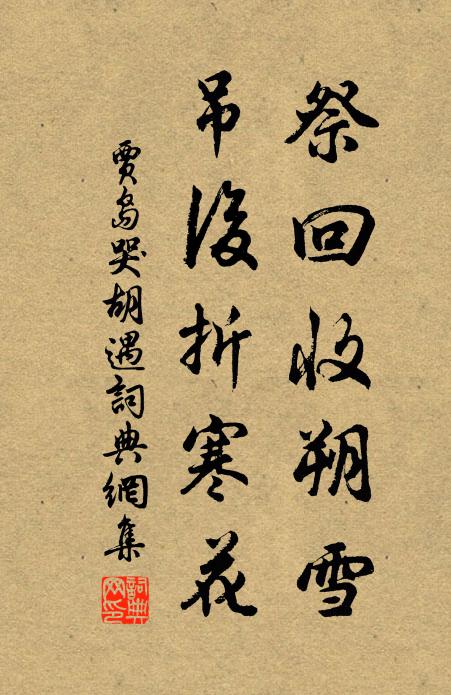 祭回收朔雪
吊後折寒花
賈島哭胡遇詞典網集
詞典網印